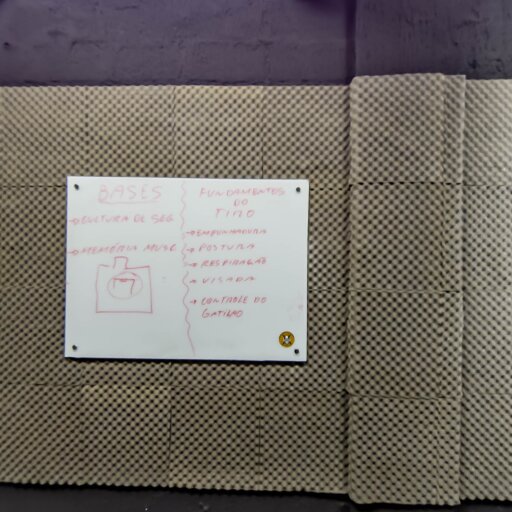 BASES
→ CULTURA DE SEG
→ MEMÓRIA MUSC
FUNDAMENTOS
DO
TIRO
→ EMPUNHADURA
→ POSTURA
→ RESPIRAÇÃO
→ VISADA
→ CONTROLE DO
GATILHO